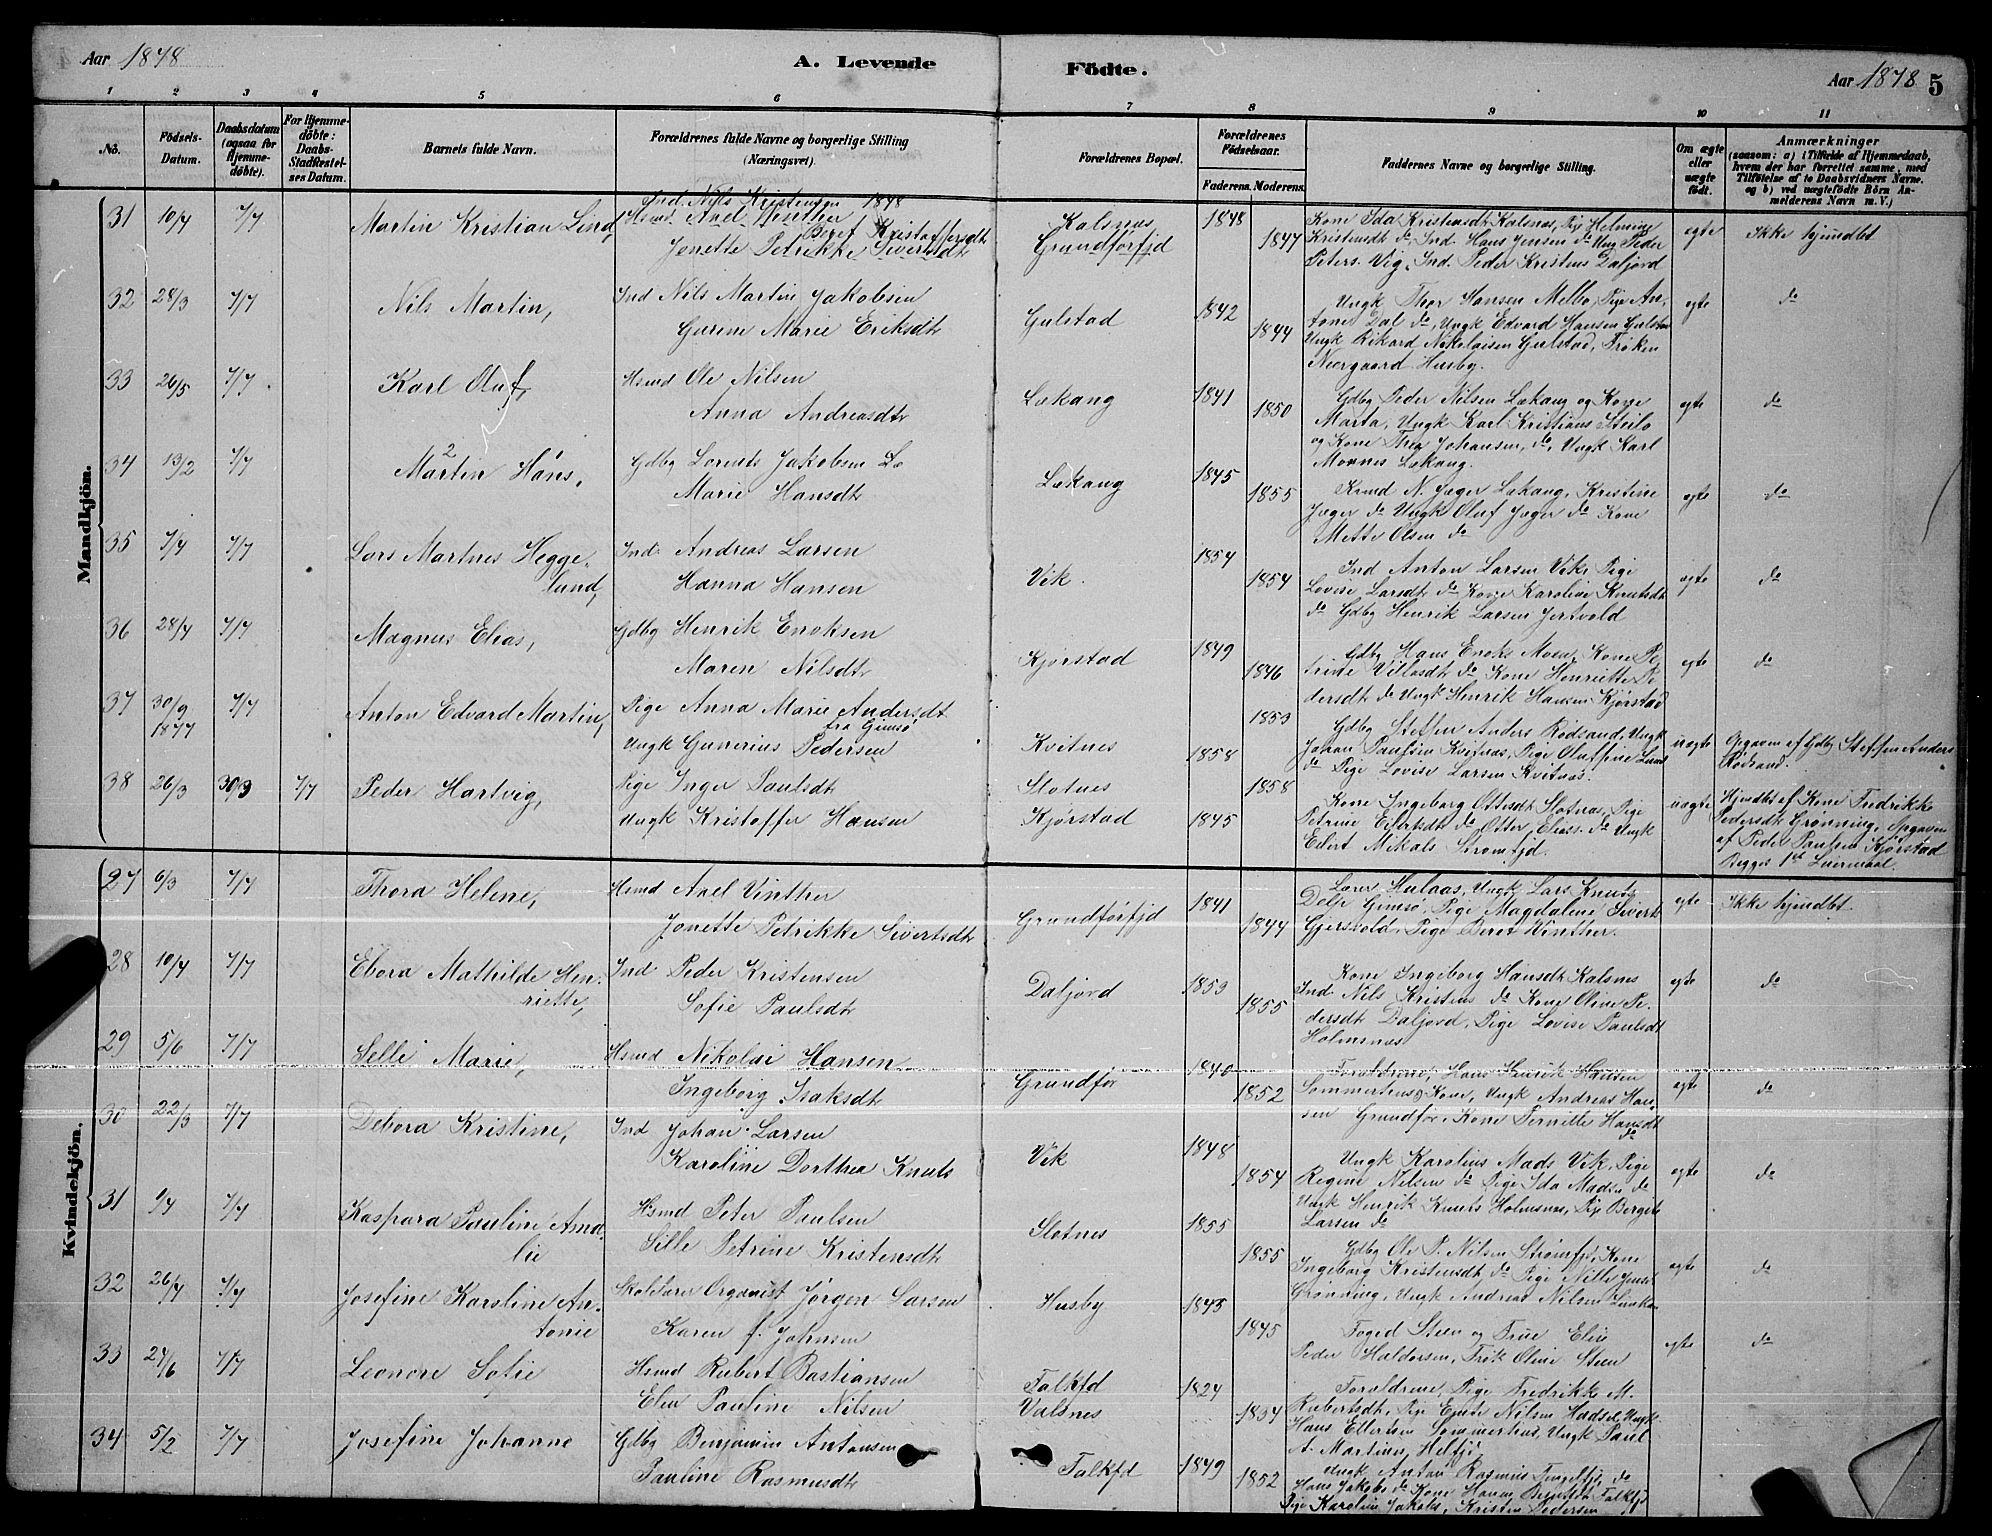 Aar 1878
A. Levende
Födte.
Aar 1878 5
1 2 3 4 5 6 7 8 9 10 11
No.
Födsels-
Datum.
Daabsdatum
(ogsaa for
Hjemme-
döbte).
For Hjemme-
döbte:
Daabs-
Stadfæstel-
ses Datum.
Barnets fulde Navn.
Forældrenes fulde Navne og borgerlige Stilling
(Næringsvei).
Forældrenes Bopæl.
Forældrenes
Födselsaar.
Faderens. Moderens.
Faddernes Navne og borgerlige Stilling.
Om ægte
eller
uægte
födt.
Anmærkninger
(saasom: a) i Tilfælde af Hjemmedaab,
hvem der har forrettet samme, med
Tilföielse af to Daabsvidners Navne.
og b) ved uægtefödte Börn An-
melderens Navn m. V.)
Mandkjön.
31 10/4 7/7 Martin Kristian Lind,
Ind. Nils Kristensen 1848
Hsmd Axel Vinther
Beret Kristoffersdt
Jonette Petrikke Sivertsdt
Kalsnes
Grundforfjd
1848
1847
Kone Ida Kristensdt Kalsnæs, Pige Helmine
Kristensdt do, Ind. Hans Jensen do Ung Peder
Peters. Vig, Ind. Peder Kristens Daljord
egte
Ikke hjmdbt
32 28/3 7/7 Nils Martin,
Ind Nils Martin Jakobsen
Gurine Marie Eriksdt
Gulstad
1842
1844
Ungk Thor Hansen Melbo, Pige An-
tone Dal do, Ungk Edvard Hansen Gulstad
Ungk Rikard Nikolaisen Gulstad, Frøken
Neergaard Husby.
egte
do
33 26/5 7/7 Karl Oluf,
Hsmd Ole Nilsen
Anna Andreasdt
Lækang
1841
1850
Gdbg Peder Nilsen Lækang og Kone
Marta, Ungk Karl Kristians Steilo
og Kone Thea Johansen, do, Ungk Karl
Monnes Lækang.
egte
do
34 13/2 7/7 Martin Hans,
2
Gdbg Lorents Jakobsen Læ
Marie Hansdt
Lækang
1845
1855
Kmd N. Jæger Lækang, Kristine
Jæger do Ungk Oluf Jæger do Kone
Mette Olsen do
egte
do
35 7/4 7/7 Lars Martnes Hegge-
lund,
Ind. Andreas Larsen
Hanna Hansen
Vik.
1854
1854
Ind Anton Larsen Vik, Pige
Lovise Larsdt do Kone Karoline Knutsdt
do Gdbg Henrik Larsen Jertvold
egte
do
36 28/4 7/7 Magnus Elias,
Gdbg Henrik Enoksen
Maren Nilsdt
Kjørstad
1849
1846
Gdbg Hans Enoks Moen, Kone Pe-
trine Villasdt do Kone Henriette Pe-
dersdt do Ungk Henrik Hansen Kjørstad
egte
do
37 30/9 7/7 Anton Edvard Martin,
1877
Pige Anna Marie Andersdt
fra Gimsø
Ungk Gunerius Pedersen
Kvitnes
1858
1853
Gdbg Steffen Anders Rødsand, Ungk
Johan Paulsen Kvitnæs, Pige Oluffine Lund
do Pige Lovise Larsen Kvitnæs.
uægte
Opgaven af Gdbg Steffen Anders
Rødsand.
38 26/3 30/3 7/7 Peder Hartvig,
Pige Inger Paulsdt
Ungk Kristoffer Hansen
Slotnes
Kjørstad
1845
1858
Kone Ingeborg Ottesdt Slotnæs, Pige
Petrine Eilertsdt do Otter Elias. do Ungk
Eilert Mikals Strømfjd.
uægte
Hjmdbt af Kone Fredrikke
Pedersdt Grønning, Opgaven
af Peder Paulsen Kjørstad
Begges 1st Leiermaal.
Kvindekjön.
27 6/3 7/7 Thora Helene,
Hsmd Axel Vinther
Jonette Petrikke Sivertsdt
Grundforfjd
1841
1844
Lærer Hulaas, Ungk Lars Knuts
Delp Gimsø, Pige Magdalene Sivert
Gjerskold, Pige Beret Winther.
egte
Ikke hjmdbt
28 10/4 7/7 Ebora Mathilde Hen-
riette,
Ind Peder Kristensen
Sofie Paulsdt
Daljord
1853
1855
Kone Ingeborg Hansdt Kalsnes
Ind Nils Kristens do Kone Oline Pe-
dersdt Daljord, Pige Lovise Paulsdt
Holmsnæs
egte
do
29 5/6 7/7 Selle Marie,
Hsmd Nikolai Hansen
Ingeborg Isaksdt
Grundfor
1840
1852
Foreldrene, Hans Henrik Hansen
Sommertens og Kone, Ungk Andreas Han-
sen Grundfor, Kone Pernille Hansdt
do
egte
do
30 22/3 7/7 Debora Kristine,
Ind Johan Larsen
Karoline Dorthea Knuts
Vik
1848
1854
Ungk Karolius Mads Vik, Pige
Regine Nilsen do Pige Ida Mads. do
Ungk Henrik Knuts Holmsnæs, Pige Bergite
Larsen do
egte
do
31 1/4 7/7 Kaspara Pauline Ama-
lie
Hsmd Peter Paulsen
Sille Petrine Kristensdt
Slotnes
1855
1855
Gdbg Ole P. Nilsen Strømfjd, Kone
Ingeborg Kristensdt do Pige Nille Jensdt
Grønning, Ungk Andreas Nilsen
egte
do
32 26/4 7/7 Josefine Karoline An-
tonie
Skolelærer Organist Jørgen Larsen
Karen f. Johnsen
Husby
1843
1845
Foged Steen og Frue Elise
Peder Haldorsen, Frøk Oline Steen
egte
do
33 24/6 7/7 Leonore Sofie
Hsmd Robert Bastiansen
Elen Pauline Nilsen
Falkfd
Valsnes
1824
1834
Foreldrene, Pige Fredrikke M.
Robertsdt, Pige Nilsen Hadsel, Ungk
Hans Ellertsen Sommerhus, Ungk Paul
A. Martinus, Helfjd
34 5/2 7/7 Josefine Johanne
Gdbg Benjamin Antonsen
Pauline Rasmusdt
Falkfd
1849
1852
Ungk Anton Rasmus do
Hans Jakobs do Kone Hanna Falkfjd
Pige Karoline Jakobs, Kristen Pedersen